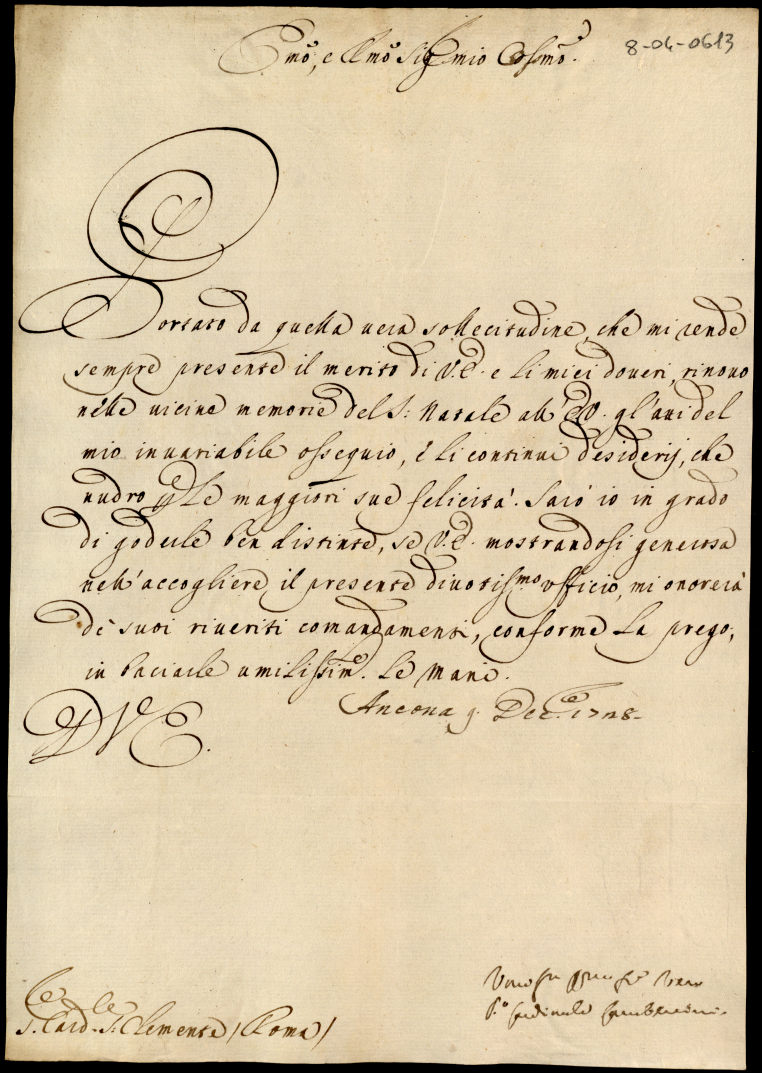 Emo, e Rmo Sig.r mio Ossmo.
8-04-0613
Portato da quella vera sollecitudine, che mi rende
sempre presente il merito di V.E. e li miei doveri, rinovo
nelle vicine memorie del S: Natale all' E.V. gl'atti del
mio invariabile ossequio, è li continui desiderij, che
nudro p Le maggiori sue felicità. Sarò io in grado
di goderle ben distinte, se V.E. mostrandosi generosa
nell'accogliere il presente divotissmo officio, mi onorerà
de' suoi riveriti comandamenti, conforme La prego,
in baciarle umilissime. Le mani.
Ancona 9. Dec.e 1728.
D V E.
S. Card.le S: Clemente / Roma /